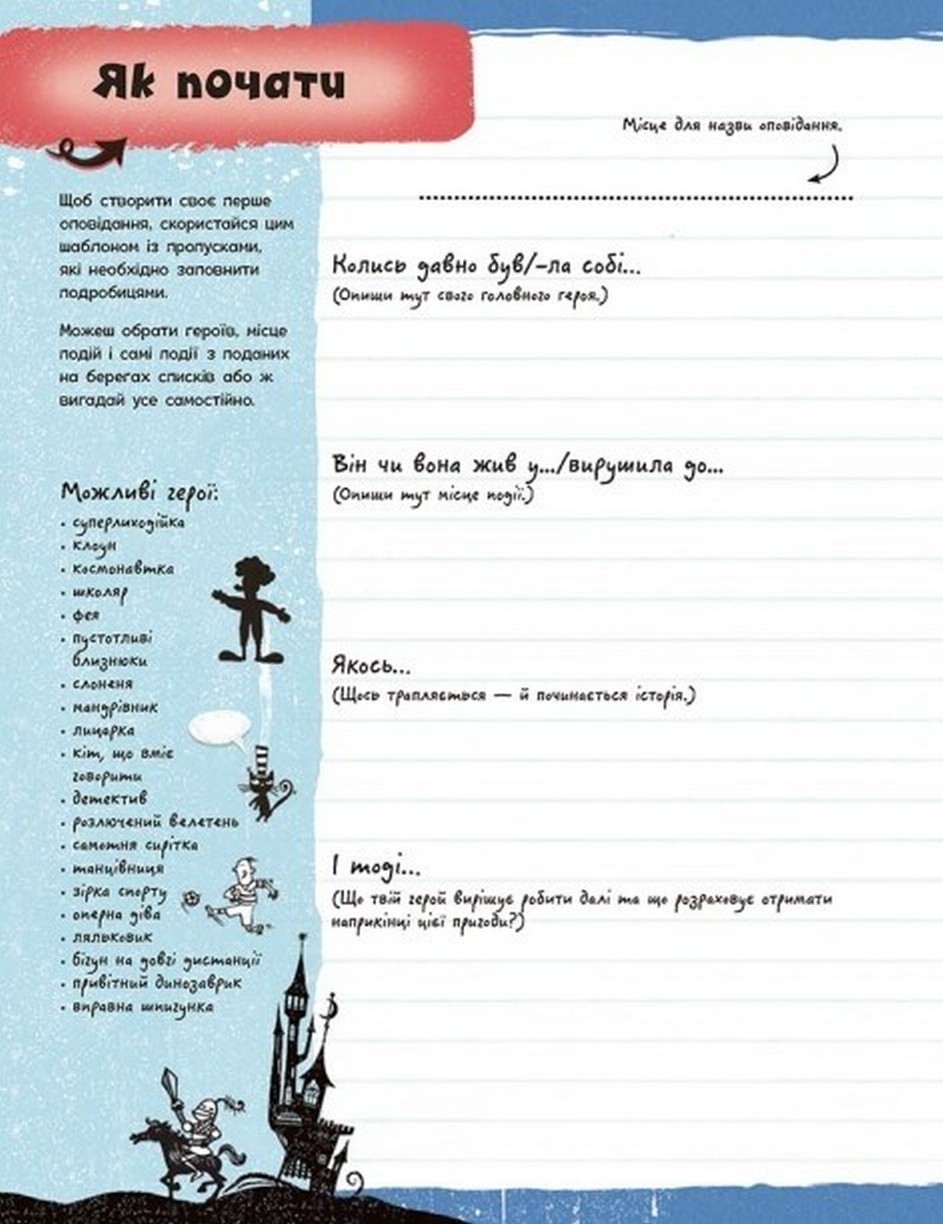 Як почати
Щоб створити своє перше
оповідання, скористайся цим
шаблоном із пропусками,
які необхідно заповнити
подробицями.
Можеш обрати героїв, місце
подій і самі події з поданих
на берегах списків або ж
вигадай усе самостійно.
Можливі герої:
• суперлиходійка
• клоун
• космонавтка
• школяр
• фея
• пустотливі
близнюки
• слоненя
• мандрівник
• лицарка
• кіт, що вміє
говорити
• детектив
• розлючений велетень
• самотня сирітка
• танцівниця
• зірка спорту
• оперна діва
• ляльковик
• бігун на довгі дистанції
• привітний динозаврик
• вправна шпигунка
Місце для назви оповідання.
Колись давно був/-ла собі...
(Опиши тут свого головного героя.)
Він чи вона жив у.../вирушила до...
(Опиши тут місце події.)
Якось...
(Щось трапляється — й починається історія.)
І тоді...
(Що твій герой вирішує робити далі та що розраховує отримати
наприкінці цієї пригоди?)